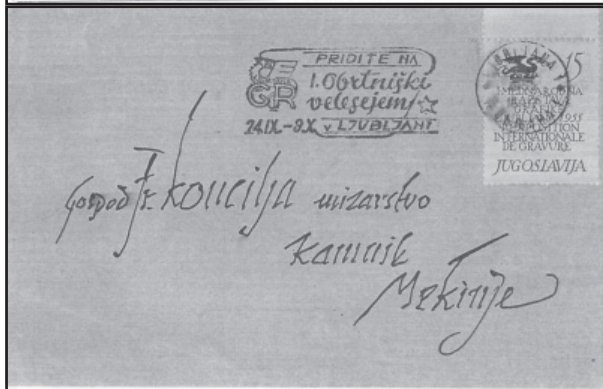 PRIDITE NA
I. Obrtniški
velesejem
GR
24.IX.-9.X. v LJUBLJANI
15
I MEDNARODNA
1955
EXPOSITION
INTERNATIONALE
DE GRAVURE
JUGOSLAVIJA
Gospod Fr. Koncilja mizarstvo
Kamnik
Mekinje